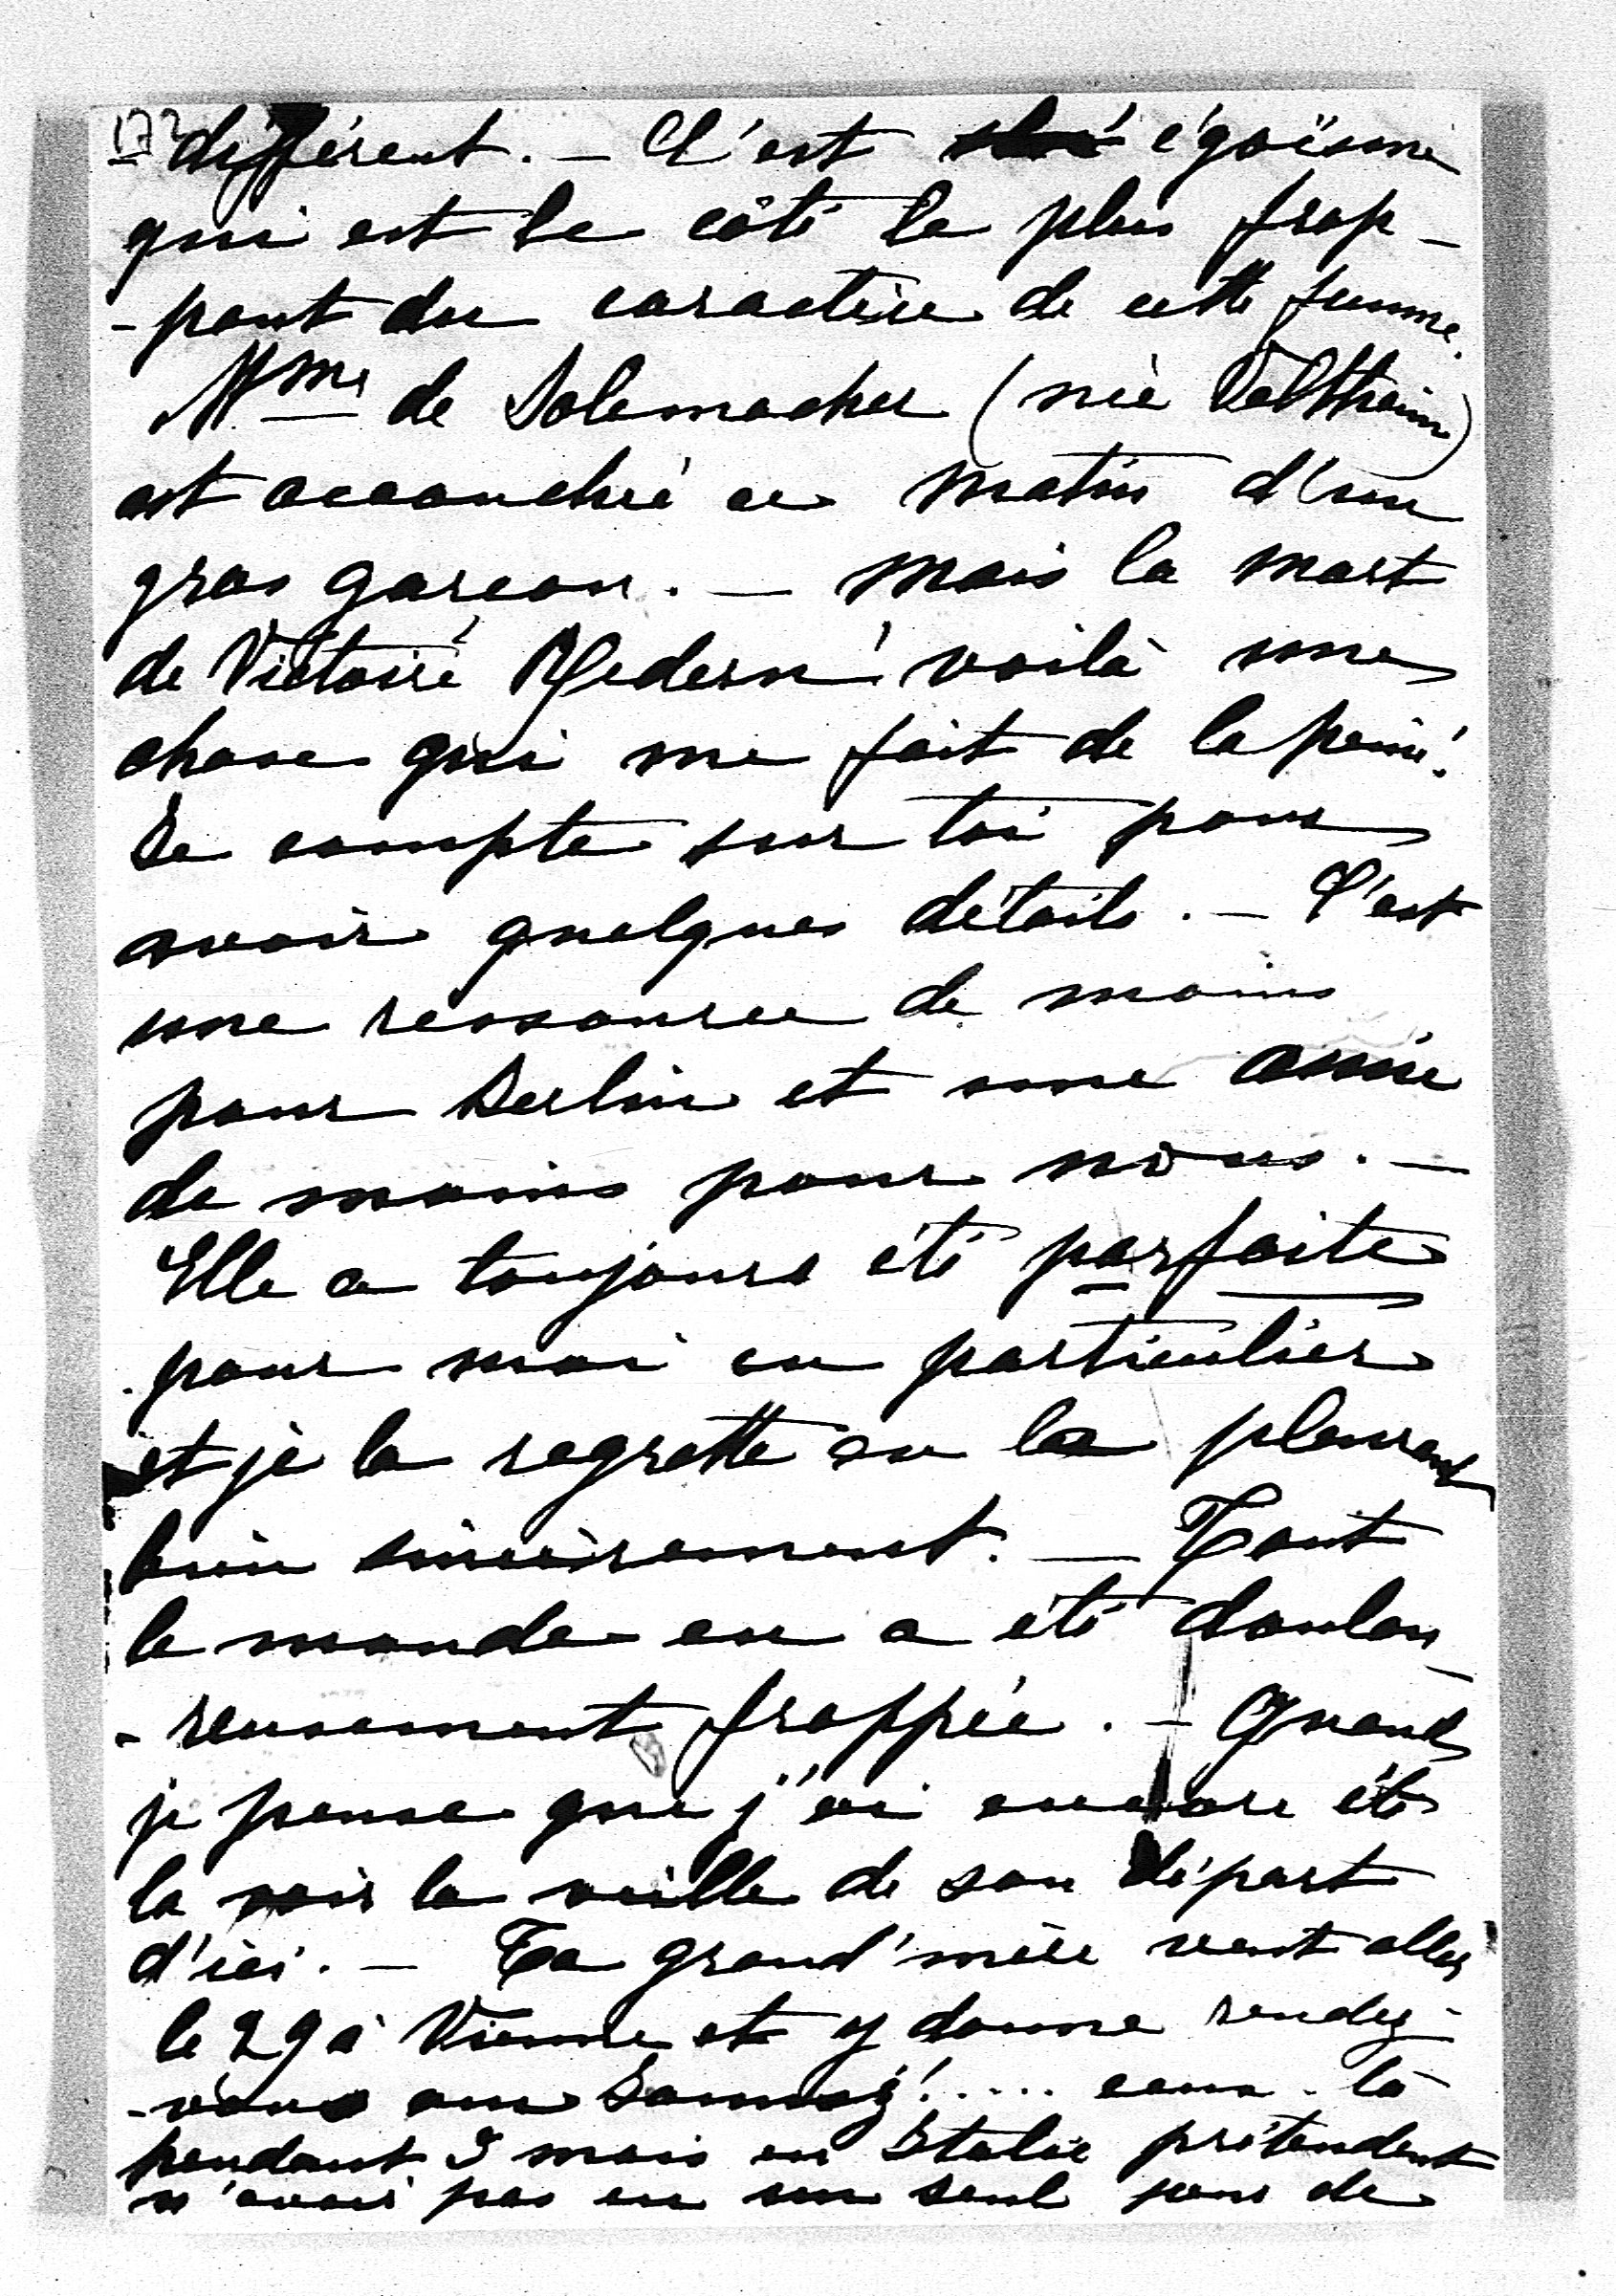 différent. — L'est égoïsme
qui est le côté le plus frap-
-pant du caractère de cette femme.
Mme de Solemacher (née Veltheim)
est accouchée ce matin d'un
gros garçon. — Mais la mort
de Victoire Redern! voilà une
chose qui me fait de la peine!
Je compte sur toi pour
avoir quelques détails. — C'est
une ressource de moins
pour Berlin et une amie
de moins pour nous. —
Elle a toujours été parfaite
pour moi en particulier
et je la regrette en la pleurant
bien sincèrement. — Tout
le monde en a été doulou-
-reusement frappée. — Quand
je pense que j'ai encore été
la voir la veille de son départ
d'ici. — Ta grand'mère veut aller
le 29 à Vienne et y donne rendez-
-vous aux ..... ceux-là
pendant 3 mois en Italie prétendent
n'avoir pas eu un seul jour de